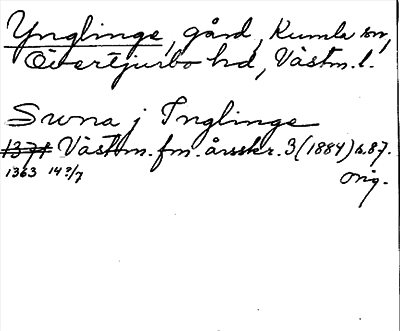 Ynglinge, gård, Kumla sn,
Övertjurbo hd, Västm. l.
Suna j Inglinge
1371 Västm. fm. årsskr. 3 (1884) s. 87.
1363 14 2/7 orig.